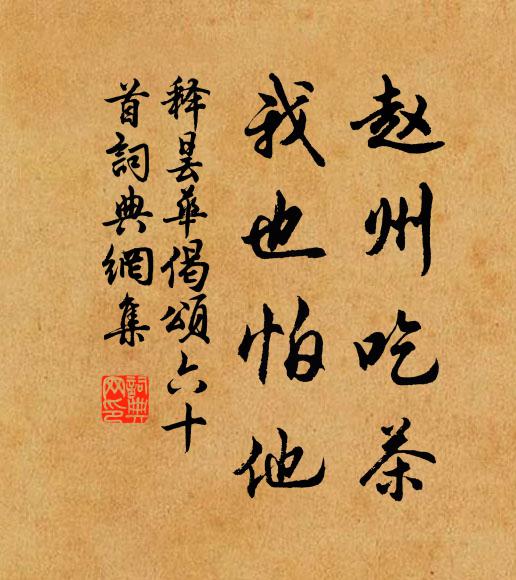 赵州吃茶
我也怕他
释昙华偈颂六十
首詞典網集
詞典
网印